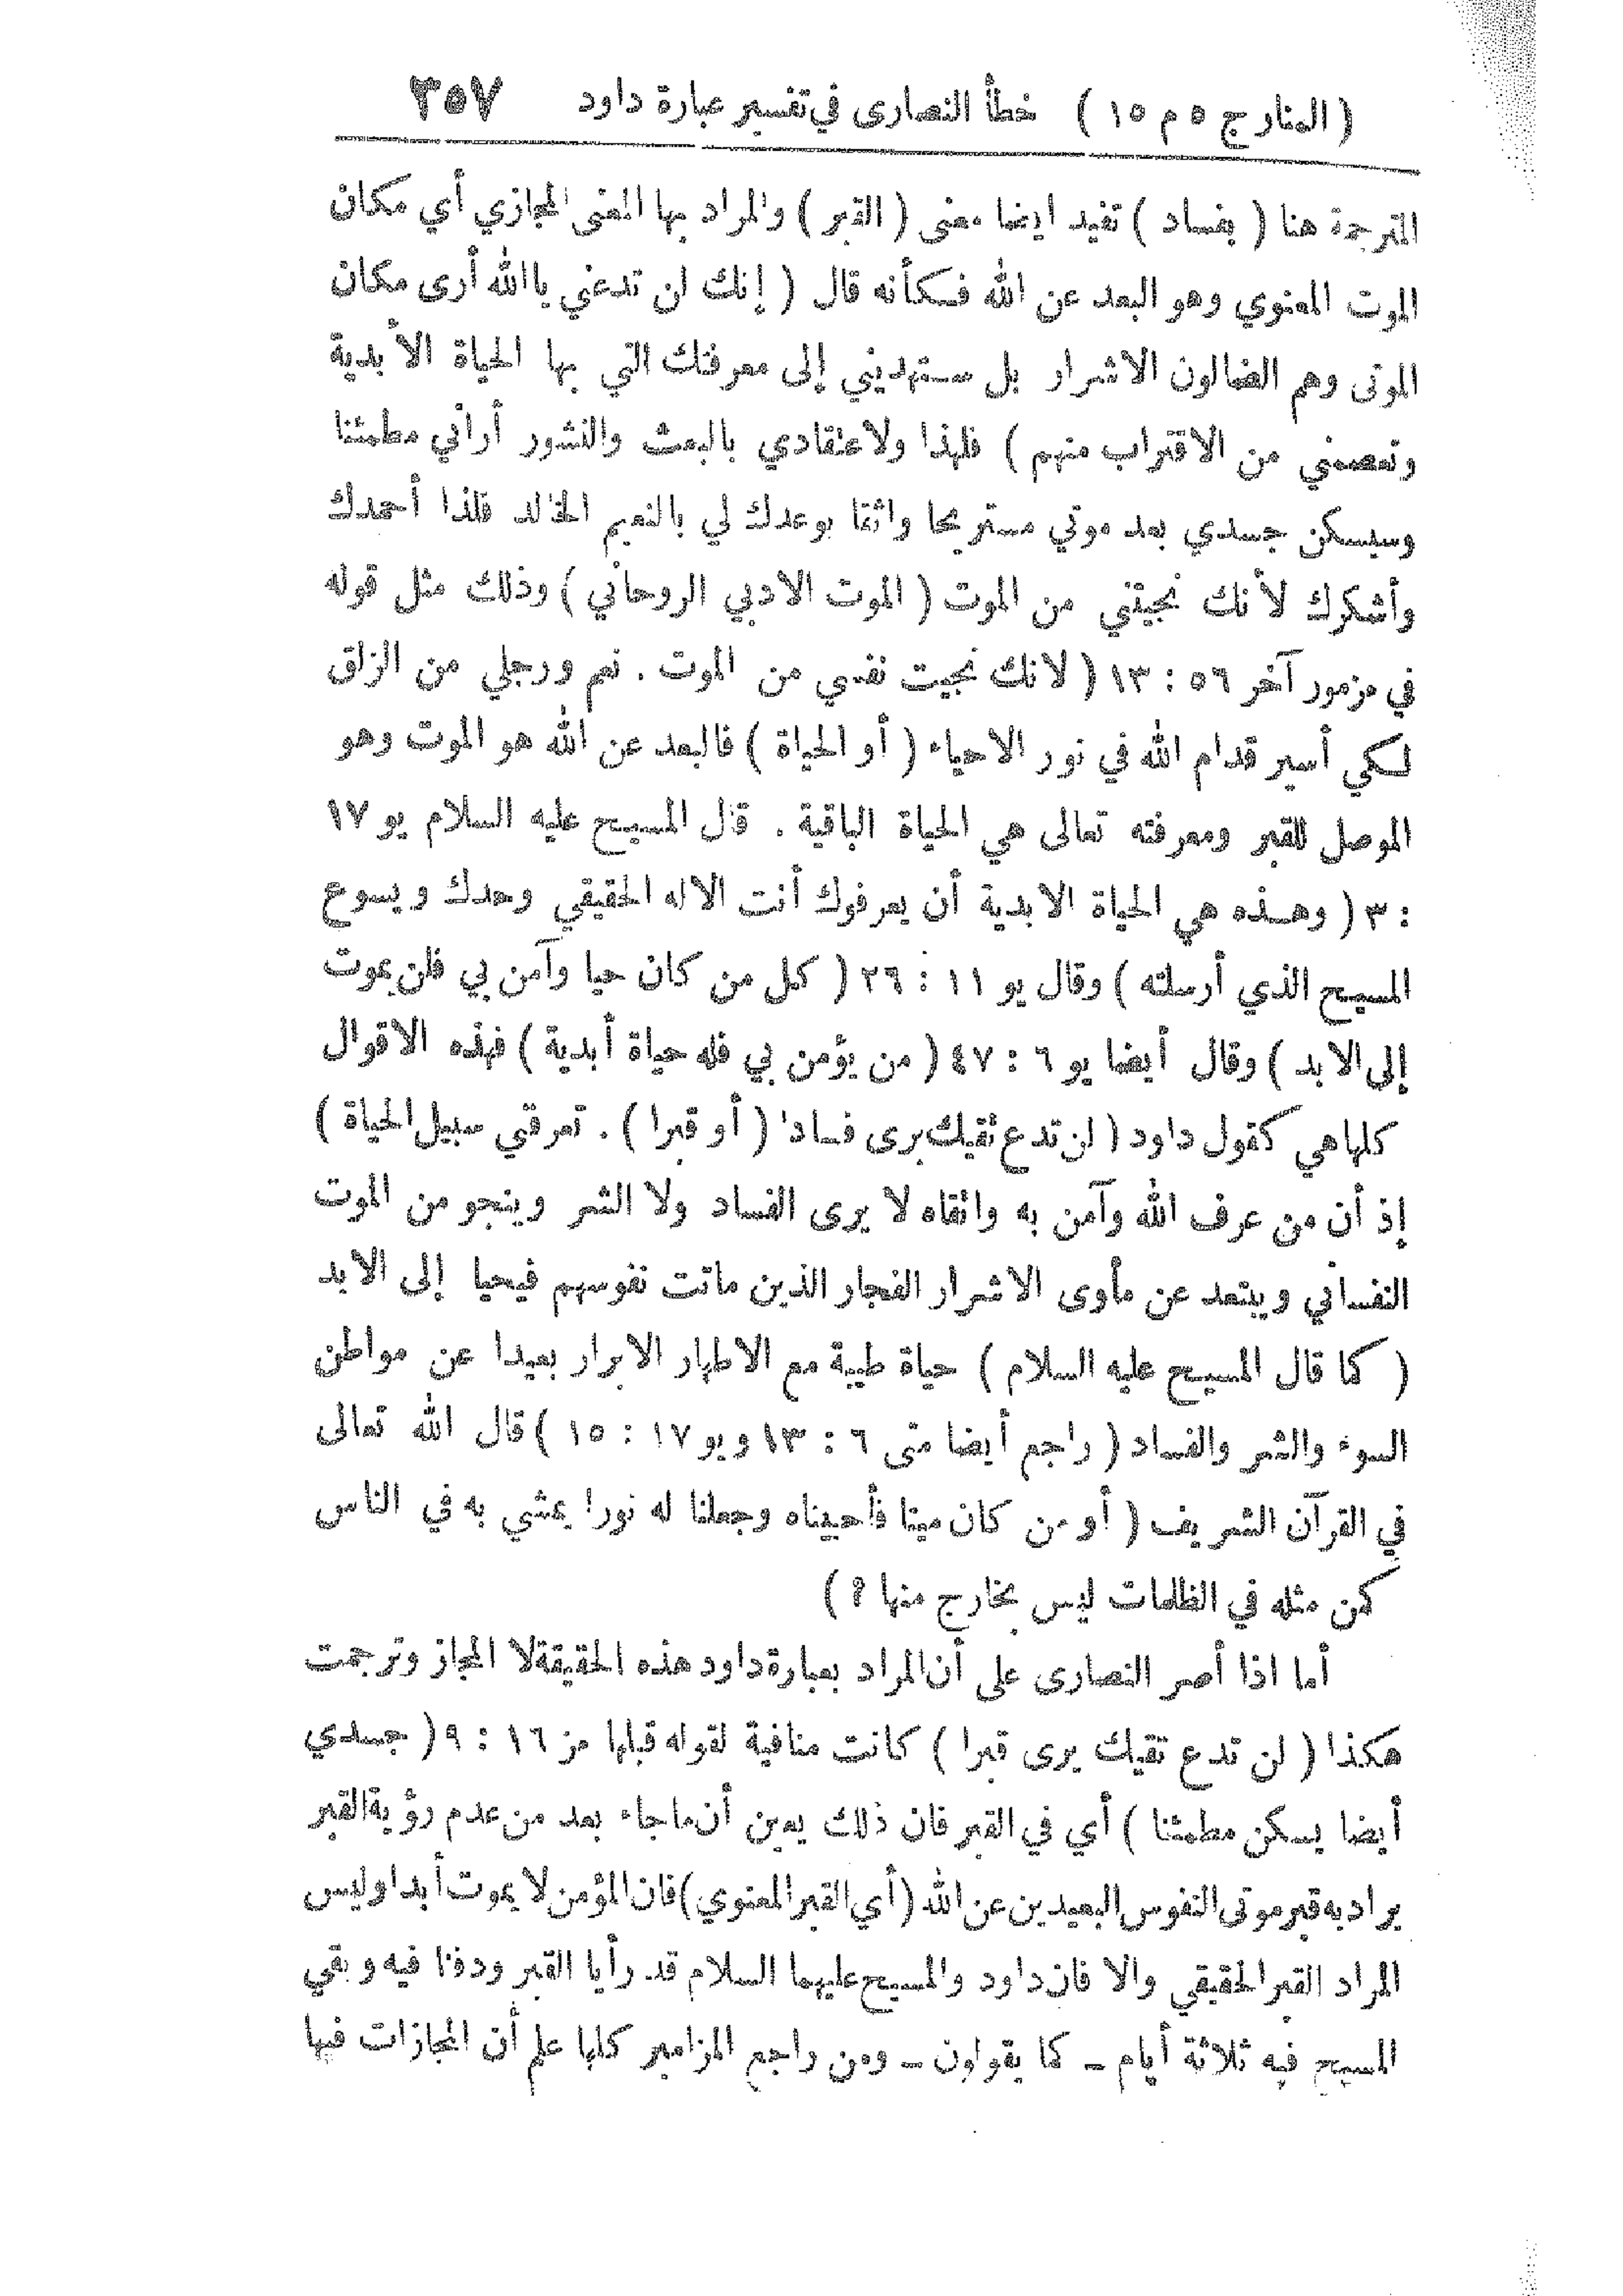 ( المنار ج ٥ م ١٥ ) خطأ النصارى في تفسير عبارة داود ٣٥٧
المترجمة هنا ( بفساد ) تفيد ايضا معنى ( القبر ) والمراد بها المعنى المجازي أي مكان
الموت المعنوي وهو البعد عن الله فكأنه قال ( إنك لن تدعني ياالله أرى مكان
الموتى وهم الضالون الاشرار بل ستهديني إلى معرفتك التي بها الحياة الأبدية
وتعصمني من الاقتراب منهم ) فلهذا ولاعتقادي بالبعث والنشور أراني مطمئنا
وسيسكن جسدي بعد موتي مستريحا واثقا بوعدك لي بالنعيم الخالد فلذا أحمدك
وأشكرك لأنك نجيتني من الموت ( الموت الادبي الروحاني ) وذلك مثل قوله
في مزمور آخر ٥٦ : ١٣ ( لانك نجيت نفسي من الموت . نعم ورجلي من الزلق
لكي أسير قدام الله في نور الاحياء ( أو الحياة ) فالبعد عن الله هو الموت وهو
الموصل للقبر ومعرفته تعالى هي الحياة الباقية . قال المسيح عليه السلام يو ١٧
: ٣ ( وهذه هي الحياة الابدية أن يعرفوك أنت الاله الحقيقي وحدك ويسوع
المسيح الذي أرسلته ) وقال يو ١١ : ٢٦ ( كل من كان حيا وآمن بي فلن يموت
إلى الابد ) وقال أيضا يو ٦ : ٤٧ ( من يؤمن بي فله حياة أبدية ) فهذه الاقوال
كلها هي كقول داود ( لن تدع تقيك يرى فسادا ( أو قبرا ) . تعرفني سبيل الحياة )
إذ أن من عرف الله وآمن به واتقاه لا يرى الفساد ولا الشر وينجو من الموت
النفساني ويبتعد عن مأوى الاشرار الفجار الذين ماتت نفوسهم فيحيا إلى الابد
( كما قال المسيح عليه السلام ) حياة طيبة مع الاطهار الابرار بعيدا عن مواطن
السوء والشر والفساد ( راجع أيضا متى ٦ : ١٣ ويو ١٧ : ١٥ ) قال الله تعالى
في القرآن الشريف ( أو من كان ميتا فأحييناه وجعلنا له نورا يمشي به في الناس
كمن مثله في الظلمات ليس بخارج منها ؟ )
أما اذا أصر النصارى على أن المراد بعبارة داود هذه الحقيقة لا المجاز وترجمت
هكذا ( لن تدع تقيك يرى قبرا ) كانت منافية لقوله قبلها مز ١٦ : ٩ ( جسدي
أيضا يسكن مطمئنا ) أي في القبر فان ذلك يعين أن ماجاء بعد من عدم رؤية القبر
يراد به قبر موتى النفوس البعيدين عن الله ( أي القبر المعنوي ) فان المؤمن لا يموت أبدا وليس
المراد القبر الحقيقي والا فان داود والمسيح عليهما السلام قد رأيا القبر ودفنا فيه وبقي
المسيح فيه ثلاثة أيام ـ كما يقولون ـ ومن راجع المزامير كلها علم أن المجازات فيها